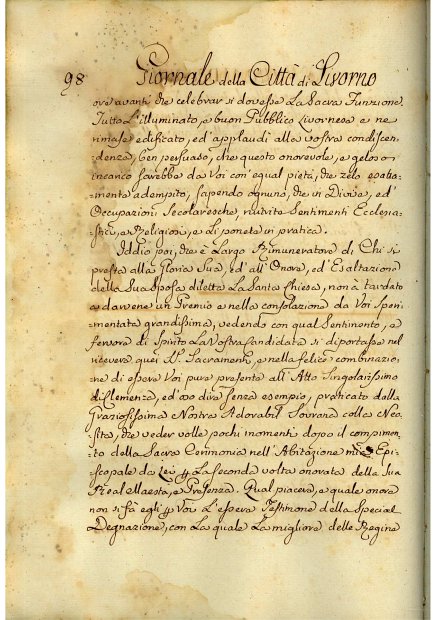 98 Giornale della Città di Livorno
ore avanti che celebrar si dovesse La Sacra Funzione.
Tutto L'illuminato, e buon Pubblico Livornese e ne
rimase edificato, ed' applaudì alla vostra condiscen-
denza, ben persuaso, che questo onorevole, e geloso
incarico sarebbe da Voi con egual pietà, che zelo esatta-
mente adempito, sapendo ognuno, che in Divise, ed'
Occupazioni Secolaresche, nutrite Sentimenti Ecclesia-
stici, e Religiosi, e Li ponete in pratica.
Iddio poi, che è Largo Rimuneratore di Chi si
presta alla Gloria Sua, ed' all' Onore, ed' Esaltazione
della Sua Sposa diletta La Santa Chiesa, non à tardato
a darvene un Premio e nella consolazione da Voi speri-
mentata grandissima, vedendo con qual Sentimento, e
fervore di Spirito La Vostra Candidata si diportasse nel
ricevere quei SS. Sacramenti, e nella felice combinazio-
ne di essere Voi pure presente all' Atto Singolarissimo
di Clemenza, ed' oso dire senza esempio, praticato dalla
Graziosissima Nostra Adorabil Sovrana colla
che veder volle pochi momenti dopo il compimen-
to della Sacra Cerimonia nell' Abitazione mia Epi-
scopale da Lei p La seconda volta onorata della Sua
Real Maestà, e Presenza. Qual piacere, e quale onore
non si fà egli p Voi L'essere Testimone della Special
Degnazione, con La quale La migliore delle Regine